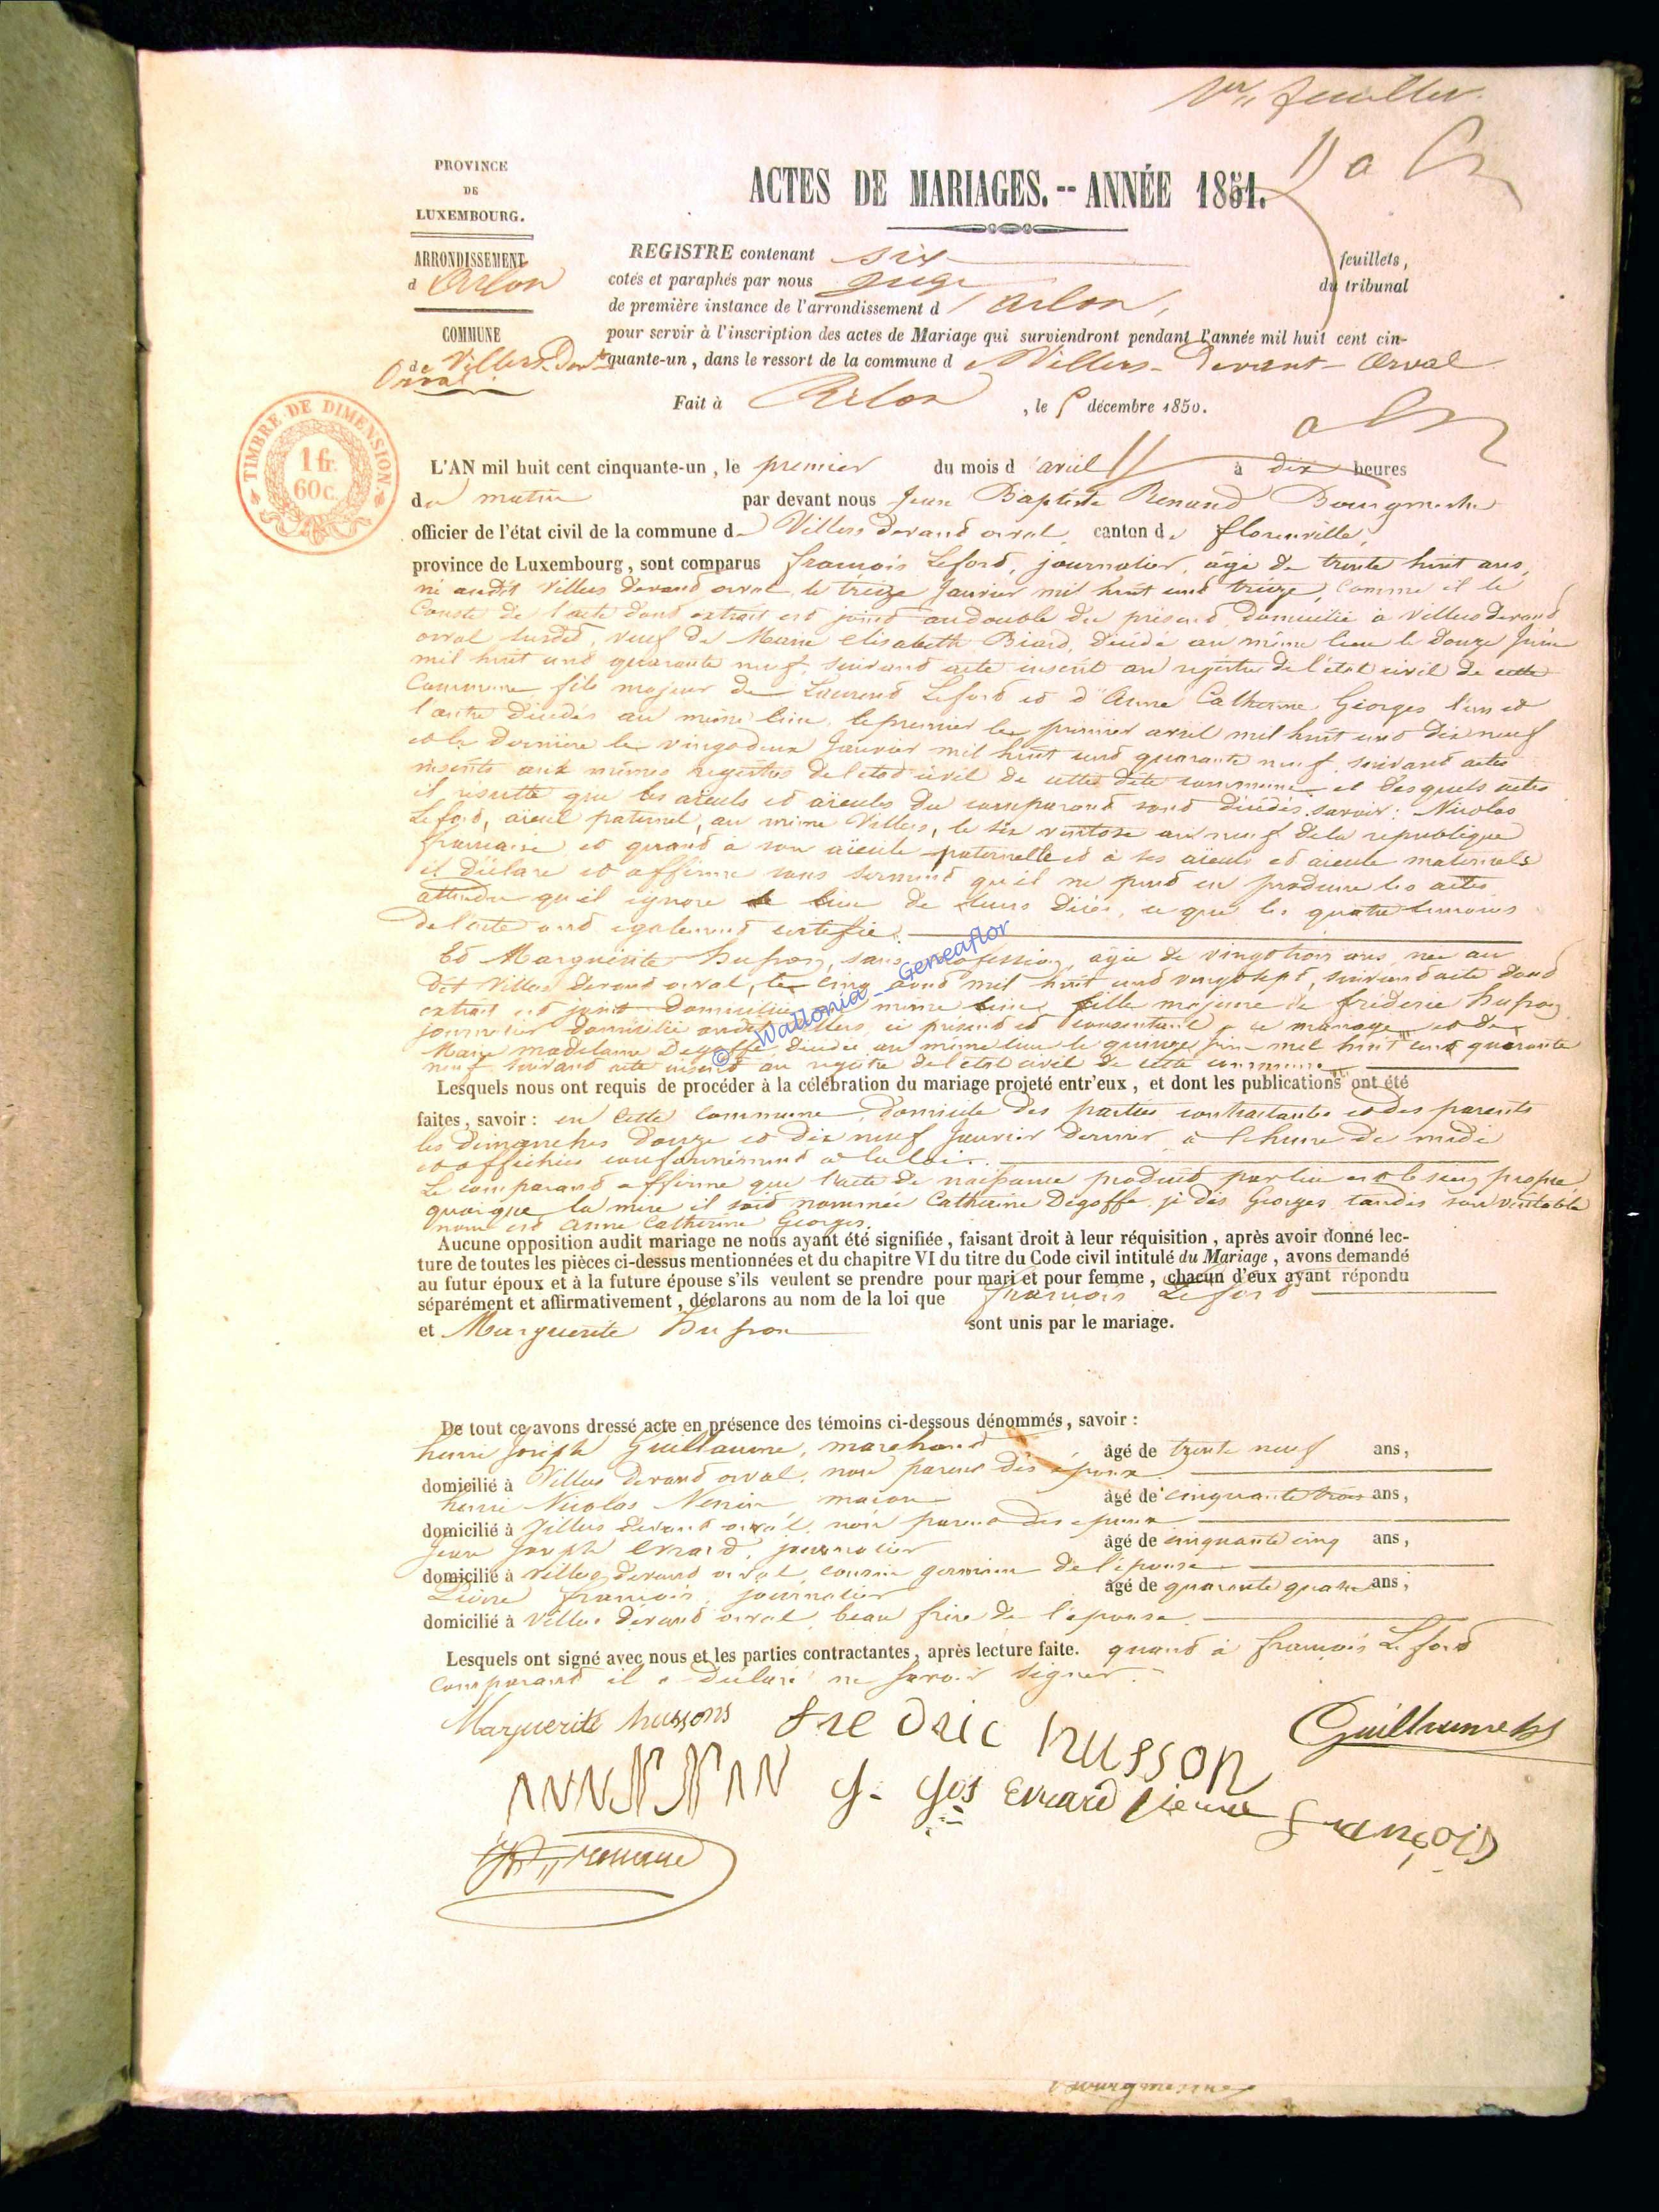 1er feuillet
PROVINCE
DE
LUXEMBOURG.
ACTES DE MARIAGES.-- ANNÉE 1851.
ARRONDISSEMENT
d Arlon
COMMUNE
de Villers-Devt
Orval
REGISTRE contenant six feuillets,
cotés et paraphés par nous juge du tribunal
de première instance de l'arrondissement d'arlon,
pour servir à l'inscription des actes de Mariage qui surviendront pendant l'année mil huit cent cin-
quante-un, dans le ressort de la commune de Villers-Devant-Orval
Fait à Arlon, le 5 décembre 1850.
TIMBRE DE DIMENSION.
1 fr.
60c.
L'AN mil huit cent cinquante-un, le premier du mois d'avril à dix heures
du matin par devant nous Jean Baptiste Renaud Bourgmestre
officier de l'état civil de la commune de Villers devant orval, canton de florenville,
province de Luxembourg, sont comparus françois Leford, journalier, âgé de trente huit ans,
né audit Villers devant orval, le treize Janvier mil huit cent treize, comme il le
Conste de l'acte dont extrait est joint au double du présent, domicilié à Villers devant
orval susdit, veuf de Marie elisabeth Biard, décédé au même lieu le douze Juin
mil huit cent quarante neuf, suivant acte inscrit au registre de l'état civil de cette
Commune, fils majeur de Laurent Lefort et d'Anne Catherine Georges l'un et
l'autre décédés au même lieu, le premier le premier avril mil huit cent dix neuf
et la dernière le vingt deux Janvier mil huit cent quarante neuf, suivant actes
inscrits aux mêmes registres de l'état civil de cette dite commune, et desquels actes
il resulte que les aïeuls et aïeules du comparant sont décédés savoir: Nicolas
Lefort, aïeul paternel, au même Villers, le six ventose an neuf de la republique
francaise et quant à son aïeule paternelle et à ses aïeuls et aïeule maternels
il déclare et affirme sous serment qu'il ne peut en produire les actes
attendu qu'il ignore le lieu de leurs décès, ce que les quatre temoins
de l'acte ont egalement certifié.
Et Marguerite husson, sans profession, agée de vingt trois ans, née au
dit Villers devant orval, le cinq août mil huit cent vingt sept, suivant acte dont
extrait est joint domiciliée même lieu, fille majeure de fréderic husson
journalier domicilié audit Villers, ci présent et consentant, à ce mariage et de
Marie madelaine Degoffe, décédée au même lieu le quinze juin mil huit cent quarante
neuf suivant acte inscrit au registre de l'état civil de cette commune
© Wallonia_Geneaflor
Lesquels nous ont requis de procéder à la célébration du mariage projeté entr'eux, et dont les publications ont été
faites, savoir: en cette commune, domicile des parties contractantes et des parents
les dimanches douze et dix neuf Janvier dernier à l'heure de midi
et affichées conformément à la loi.
Le comparant affirme que l'acte de naissance produit par lui est le sien propre
quoique la mère il soit nommée Catherine Degoffe je dis Georges tandis son véritable
nom est Anne Catherine Georges.
Aucune opposition audit mariage ne nous ayant été signifiée, faisant droit à leur réquisition, après avoir donné lec-
ture de toutes les pièces ci-dessus mentionnées et du chapitre VI du titre du Code civil intitulé du Mariage, avons demandé
au futur époux et à la future épouse s'ils veulent se prendre pour mari et pour femme, chacun d'eux ayant répondu
séparément et affirmativement, déclarons au nom de la loi que françois Leford
et Marguerite husson sont unis par le mariage.
De tout ce avons dressé acte en présence des témoins ci-dessous dénommés, savoir:
henri Joseph Guillaume, marchand âgé de trente neuf ans,
domicilié à Villers devant orval, non parent des époux
henri Nicolas Nenin maçon âgé de cinquante trois ans,
domicilié à Villers devant orval, non parent des epoux
Jean Joseph Evrard, journalier âgé de cinquante cinq ans,
domicilié à villers devant orval, cousin germain de l'épouse
Pierre françois, journalier âgé de quarante quatre ans,
domicilié à villers devant orval, beau frère de l'epouse
Lesquels ont signé avec nous et les parties contractantes, après lecture faite. quant à françois Leford
comparant il a déclaré ne savoir signer.
Marguerite hussons fredric husson Guillaume hj
J. Jos Evrard pierre françois